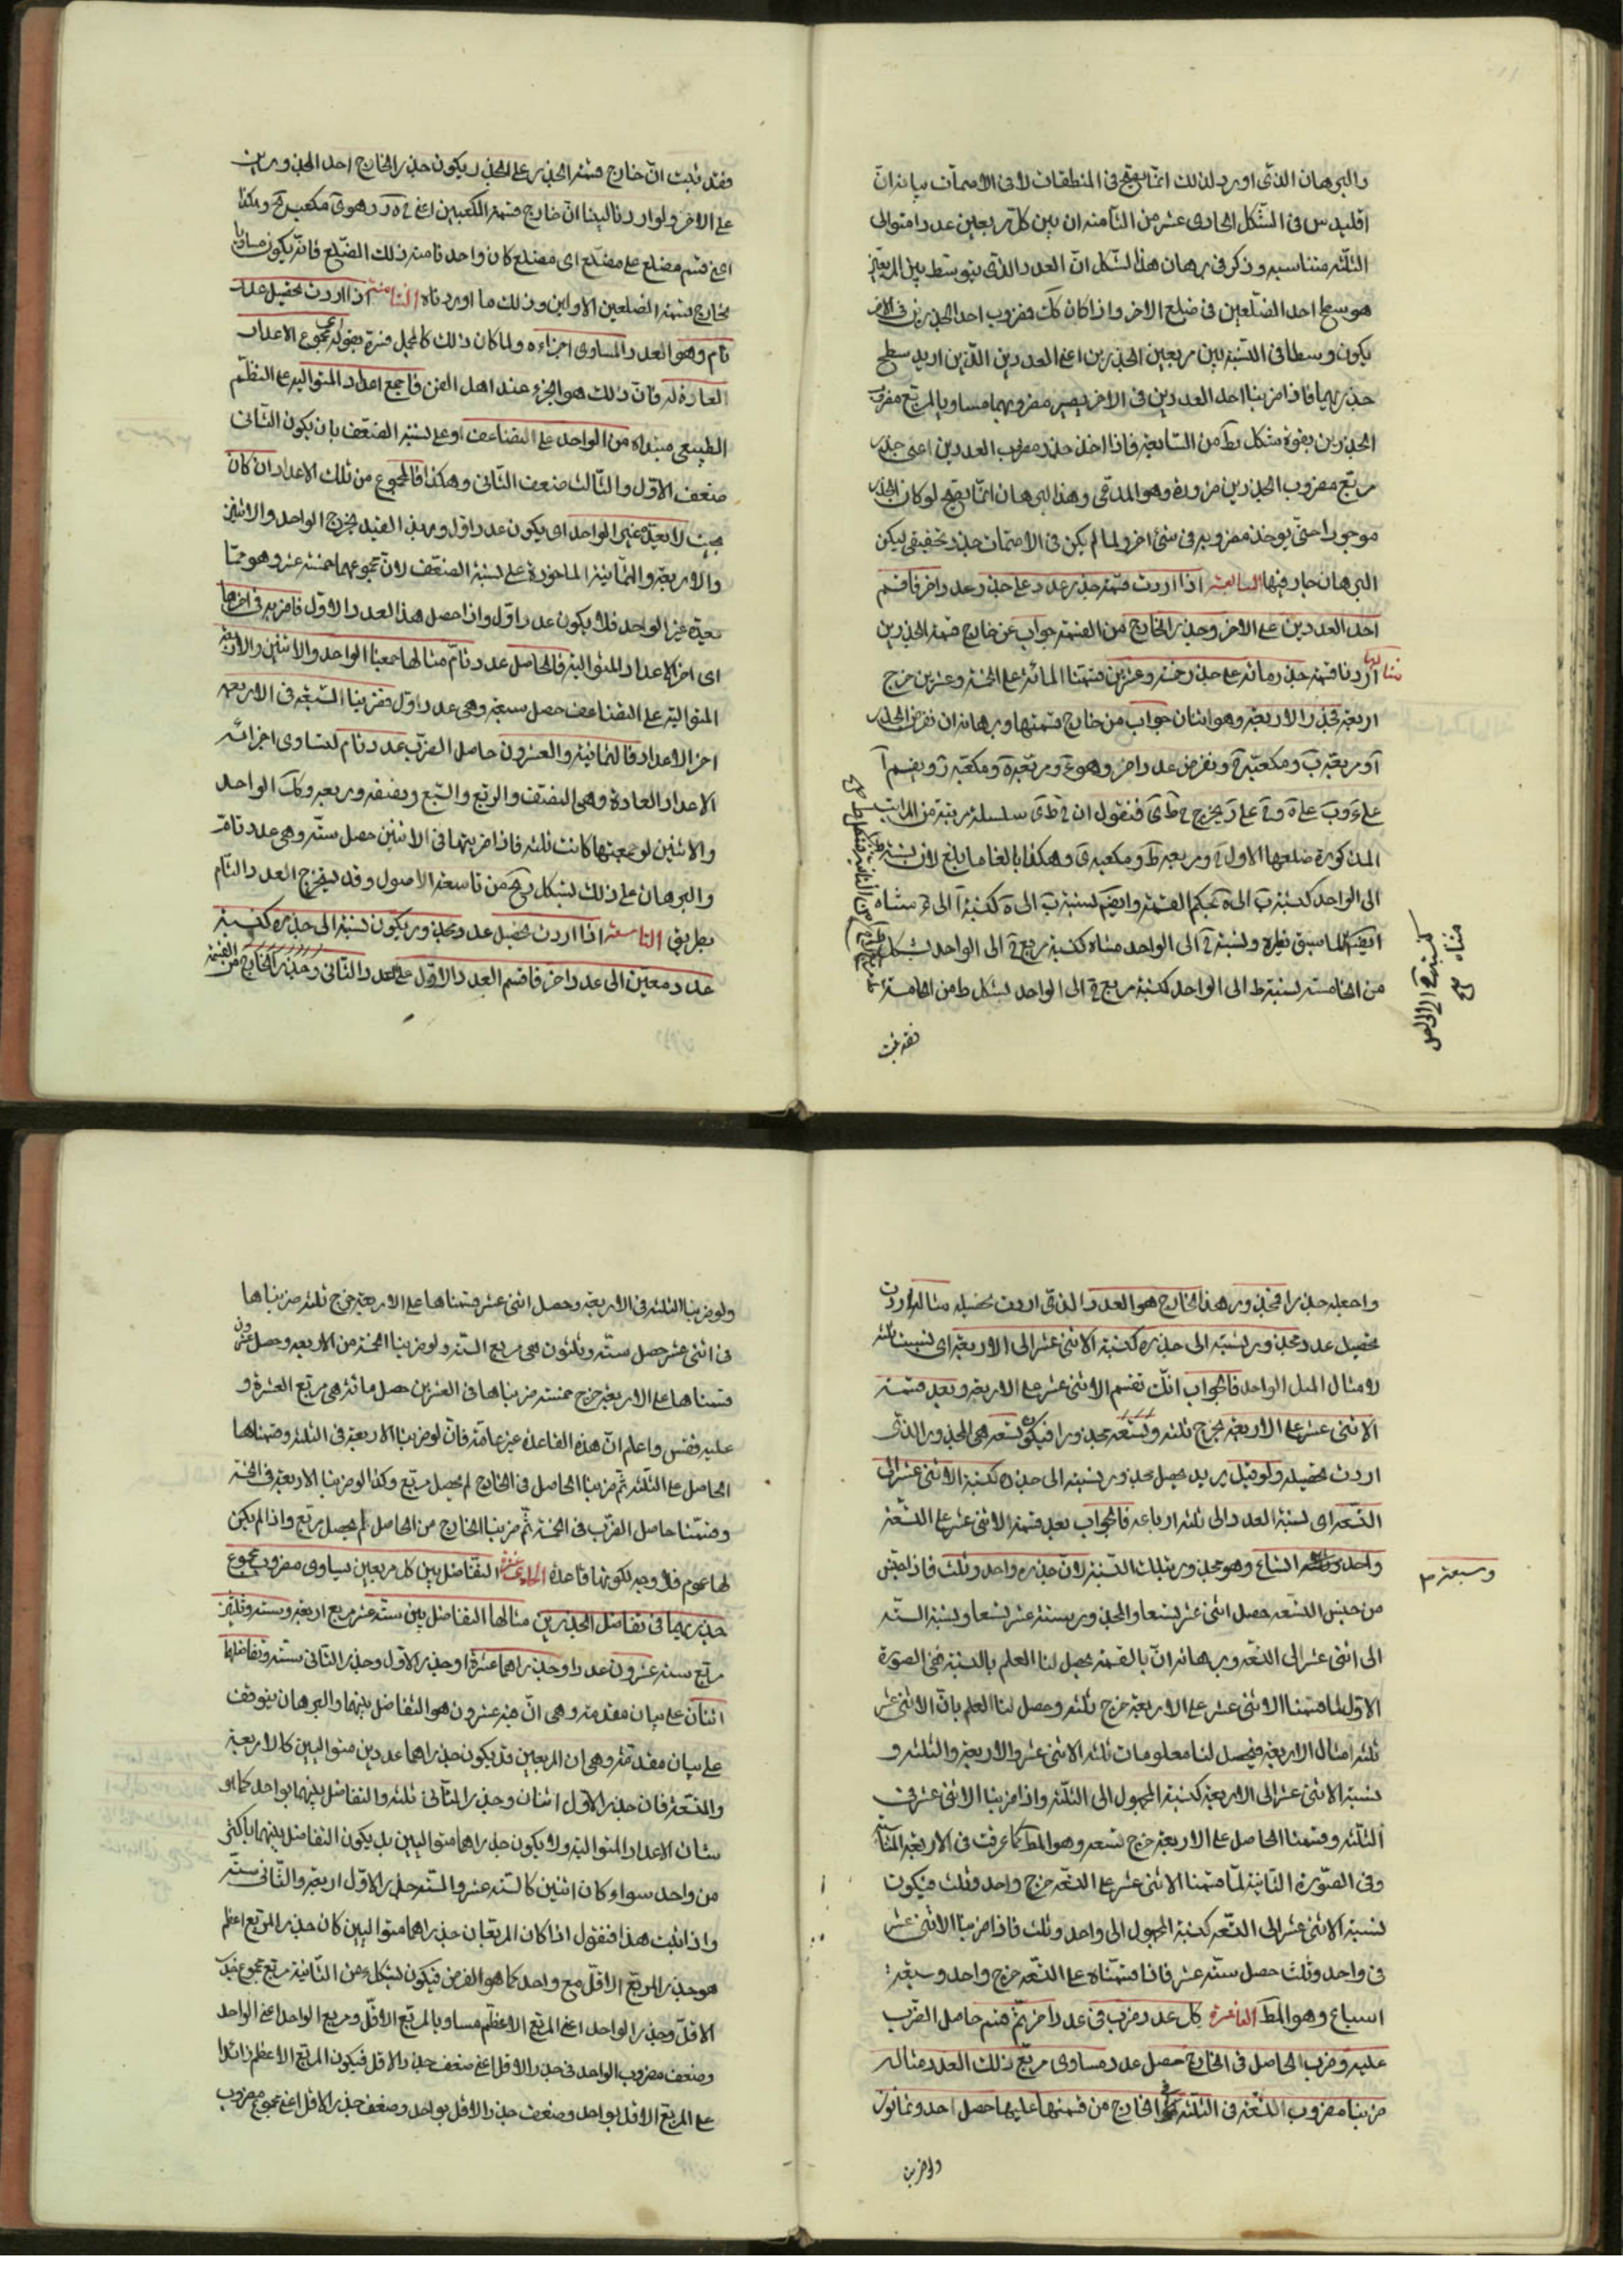 والبرهان الذى اورد لذلك انما يصح فى المنطقات لا فى الاصمات بيانه ان
اقليدس فى الشكل الحادى عشر من الثامنه ان بين كل مربعين عددا متوالى
الثلثه متناسبه وذكر فى برهان هذا الشكل ان العدد الذى يتوسط بين المربعين
هو سطح احد الضلعين فى ضلع الاخر واذا كان كك فضروب احد الجذرين فى الاخر
يكون وسطا فى النسبة بين مربعين الجذرين اعنى العددين الذين اريد سطح
جذريهما فاذا ضربنا احد العددين فى الاخر يصير مضروبهما مساويا لمربع مضروب
الجذرين بقوة شكل من السابعه فاذا اخذ جذر مضروب العددين اعنى جذر
مربع مضروب الجذرين ضرورة وهو المدعى وهذا البرهان انما يصح لو كان الجذر
موجودا حتى يوخذ مضروبه فى شئ اخر ولما لم يكن فى الاصمات جذر تحقيقى ليكن
البرهان جار فيها السابعه اذا اردت قسمة جذر عدد على جذر عدد اخر فاقسم
احد العددين على الاخر وجذر الخارج من القسمة جواب عن خارج قسمة الجذرين
مثاله اردنا قسمة جذر مائه على جذر خمسه وعشرين قسمنا المائه على الخمسة وعشرين خرج
اربعه فجذر الاربعه وهو اثنان جواب من خارج قسمتها وبرهانه ان نفرض الجذر
ا ومربعه ب ومكعبه ح ونفرض عددا اخر وهو ء ومربعه ه ومكعبه ر ونقسم ا
على ء وب على ه وح على ر يخرج ح ط ى فنقول ان ح ط ى سلسله مرتبة من المراتب
المذكورة ضلعها الاول ح ومربعه ط ومكعبه ى وهكذا بالغا ما بلغ لان نسبة ط
الى الواحد كنسبة ب الى ه بحكم القسمة وايضا نسبة ب الى ه كنسبة ا الى ء مثناه
ايضا لما سبق ونسبة ح الى الواحد مثناه كنسبة مربع ح الى الواحد بشكل
من الخامسة نسبة ط الى الواحد كنسبة مربع ح الى الواحد بشكل ط من الخامسة
فقد ثبت
كنسبة ا الى
مثناه
فقد ثبت ان خارج قسمة الجذر على الجذر يكون جذر الخارج احد المجذورين
على الاخر ولو اردنا لبينا ان خارج قسمة المكعبين اعنى ح ر هو ى مكعب ح وهكذا
اعنى قسم مضلع على مضلع اى مضلع كان واحدا منه ذلك الضلع فانه يكون مساويا
لخارج قسمة الضلعين الاولين وذلك ما اوردناه الثامنه اذا اردت تحصيل عدد
تام وهو العدد المساوى اجزاءه ولما كان ذلك كالمجمل فسره بقوله اى مجموع الاعداد
العادة له فان ذلك هو الجزء عند اهل الفن فاجمع اعداد المتواليه على النظم
الطبيعى مبتداه من الواحد على التضاعف او على نسبة الضعف بان يكون الثانى
ضعف الاول والثالث ضعف الثانى وهكذا فالمجموع من تلك الاعداد ان كان
بحيث لا يعده غير الواحد اى يكون عددا اول وبهذ القيد يخرج الواحد والاثنين
والاربعه والثمانية الماخوذة على نسبة الضعف لان مجموعهما خمسة عشر وهو مما
يعده غير الواحد فلا يكون عددا اول واذا حصل هذا العدد الاول فاضربه فى اخرها
اى اخر الاعداد المتوالية فالحاصل عدد تام مثالها جمعنا الواحد والاثنين والاربعه
المتوالية على التضاعف حصل سبعه وهى عدد اول فضربنا السبعه فى الاربعه
اخر الاعداد فالثمانية والعشرون حاصل الضرب عدد تام لتساوى اجزائه
الاعداد العادة وهى النصف والربع والسبع ونصفه وربعه وكك الواحد
والاثنين لو جمعتها كانت ثلثه فاذا ضربتها فى الاثنين حصل ستة وهى عدد تام
والبرهان على ذلك بشكل من تاسعة الاصول وقد يخرج العدد التام
بطريق التاسعه اذا اردت تحصيل عدد مجذور يكون نسبة الى جذره كنسبة
عدد معين الى عدد اخر فاقسم العدد الاول على العدد الثانى وخذ الخارج من القسمة
واجعله جذرا فمجذور هذا الخارج هو العدد الذى اردت تحصيله مثاله اردت
تحصيل عدد مجذور نسبته الى جذره كنسبة الاثنى عشر الى الاربعة اى نسبت ثلثه
لامثال المثل الواحد فالجواب انك تقسم الاثنى عشر على الاربعه وبعد قسمة
الاثنى عشر على الاربعه يخرج ثلثه وتسعه مجذورا فيكون تسعه هى المجذور الذى
اردت تحصيله ولو قيل يريد يحصل مجذور نسبته الى جذره كنسبة الاثنى عشر الى
التسعه اى نسبة العدد الى ثلثه ارباعه فالجواب بعد قسمة الاثنى عشر على التسعه
واحد وسبعه اتساع وهو مجذور بتلك النسبة لان جذره واحد وثلث فاذا جنس
وسبعه
من جنس التسعه حصل اثنى عشر تسعا والمجذور ستة عشر تسعا ونسبة الستة
الى اثنى عشر الى التسعه وبرهانه ان بالقسمة يحصل لنا العلم بالنسبة ففى الصورة
الاولى لما قسمنا الاثنى عشر على الاربعه خرج ثلثه وحصل لنا العلم بان الاثنى عشر
ثلثه امثال الاربعه فيحصل لنا معلومات ثلثه الاثنى عشر والاربعه والثلثه و
نسبة الاثنى عشر الى الاربعه كنسبة المجهول الى الثلثه واذا ضربنا الاثنى عشر فى
الثلثه وقسمنا الحاصل على الاربعه خرج تسعه وهو المط كما عرفت فى الاربعه المتناسبه
وفى الصورة الثانية لما قسمنا الاثنى عشر على التسعه خرج واحد وثلث فيكون
نسبة الاثنى عشر الى التسعه كنسبة المجهول الى واحد وثلث فاذا ضربنا الاثنى عشر
فى واحد وثلث حصل ستة عشر فاذا قسمناه على التسعه خرج واحد وسبعه
اتساع وهو المط العاشرة كل عدد ضرب فى عدد اخر ثم قسم حاصل الضرب
عليه وضرب الحاصل فى الخارج حصل عدد مساوى مربع ذلك العدد مثاله
ضربنا مضروب التسعه فى الثلثه فى الخارج من قسمتها عليها حصل احد وثمانون
ولو ضربنا
ولو ضربنا الثلثه فى الاربعه وحصل اثنى عشر قسمناها على الاربعه خرج ثلثه ضربناها
فى اثنى عشر حصل ستة وثلثون هى مربع الستة ولو ضربنا الخمسة من الاربعه وحصل عشرون
قسمناها على الاربعه خرج خمسة ضربناها فى العشرين حصل مائه هى مربع العشرة و
عليه فقس واعلم ان هذه القاعدة غير عامة فان لو ضربنا الاربعة فى الثلثه وقسمناها
الحاصل على الثلثه ثم ضربنا الحاصل فى الخارج لم يحصل مربع وكذا لو ضربنا الاربعه فى الخمسة
وقسمنا حاصل الضرب فى الخمسة ثم ضربنا الخارج من الحاصل لم يحصل مربع واذا لم يكن
لها عموم فلا وجه لكونها قاعدة الحادية عشرة التفاضل بين كل مربعين يساوى مضروب مجموع
جذريهما فى تفاضل الجذرين مثالها التفاضل بين ستة عشر مربع اربعه وستة وثلثين
مربع ستة عشرون عددا وجذراهما عشرة اوجذر الاول وجذر الثانى ستة وتفاضلهما
اثنان على بيان مقدمة وهى ان عشرون هو التفاضل بينهما والبرهان يتوقف
على بيان مقدمة وهى ان المربعين قد يكون جذراهما عددين متواليين كالاربعة
والتسعه فان جذر الاول اثنان وجذر الثانى ثلثه والتفاضل بينهما بواحد كما هو
شان الاعداد المتوالية ولا يكون جذراهما متواليين بل يكون التفاضل بينهما باكثر
من واحد سواء كان اثنين كالستة عشر والستة جذر الاول اربعه والثانى ستة
واذا ثبت هذا فنقول اذا كان المربعان جذراهما متواليين كان جذر المربع اعظم
هو جذر المربع الاقل مع واحد كما هو الفرض فيكون بشكل ء من الثانية مربع مجموع جذر
الاقل وجذر الواحد اعنى المربع الاعظم مساويا لمربع الاقل ومربع الواحد اعنى الواحد
وضعف مضروب الواحد فى جذر الاقل اعنى ضعف جذر الاقل فيكون المربع الاعظم زائدا
على المربع الاقل بواحد وضعف جذر الاقل بواحد وضعف جذر الاقل اعنى مجموع مضروب